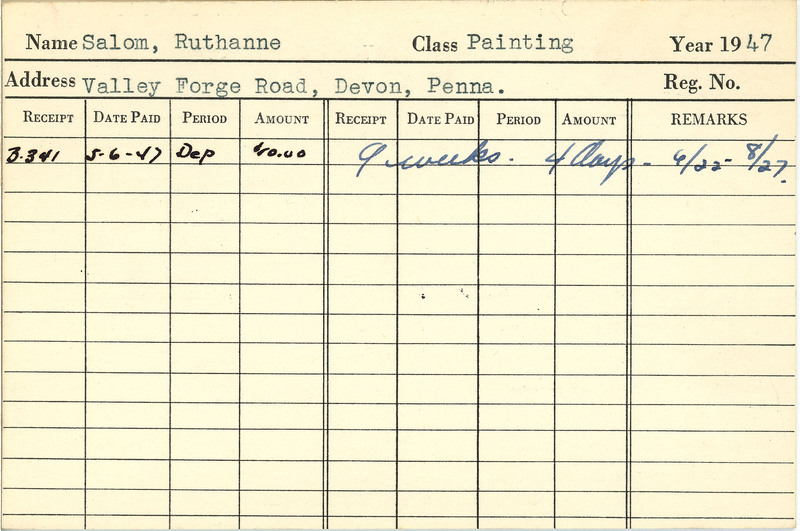 Name Salom, Ruthanne Class Painting Year 1947
Address Valley Forge Road, Devon, Penna. Reg. No.
RECEIPT DATE PAID PERIOD AMOUNT RECEIPT DATE PAID PERIOD AMOUNT REMARKS
B-341 5-6-47 Dep 40.00 9 weeks. 4 Days - 6/22- 8/27.